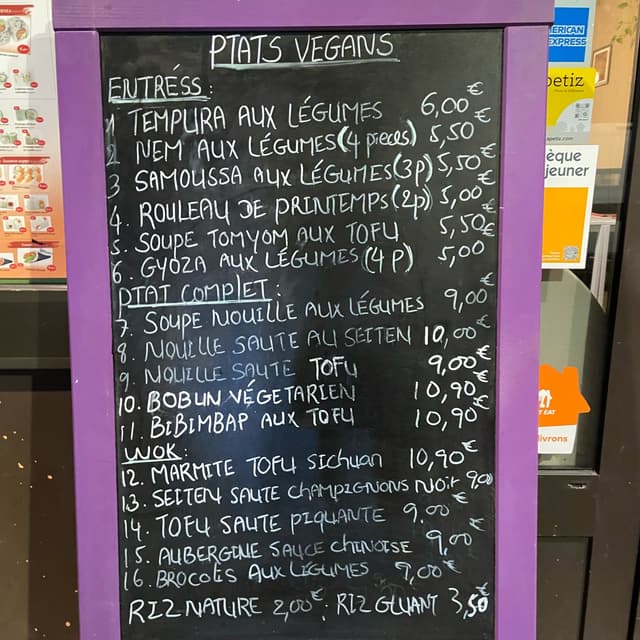 PTATS VEGANS
ENTRÉSS:
1 TEMPURA AUX LÉGUMES 6,00€
2 NEM AUX LÉGUMES (4 pieces) 5,50€
3 SAMOUSSA AUX LÉGUMES (3p) 5,50€
4. ROULEAU DE PRINTEMPS (2p) 5,00€
5. SOUPE TOMYOM AUX TOFU 5,50€
6. GYOZA AUX LÉGUMES (4 P) 5,00
PTAT COMPLET:
7. SOUPE NOUILLE AUX LÉGUMES 9,00€
8. NOUILLE SAUTE AU SEITEN 10,00€
9. NOUILLE SAUTE TOFU 9,00€
10. BOBUN VÉGETARIEN 10,90€
11. BiBIMBAP AUX TOFU 10,90€
WOK:
12. MARMITE TOFU Sichuan 10,90€
13. SEITEN SAUTE CHAMPIGNONS NOiR 9,00
14. TOFU SAUTE PIQUANTE 9.00€
15. AUBERGINE SAUCE CHINOISE 9,00€
16. BROCOLIS AUX LÉGUMES 9,00€
RIZ NATURE 2,00€. RIZ GLUANT 3,50€
ERICAN
EXPRESS
petiz
apetiz.com
èque
jeuner
T EAT
livrons